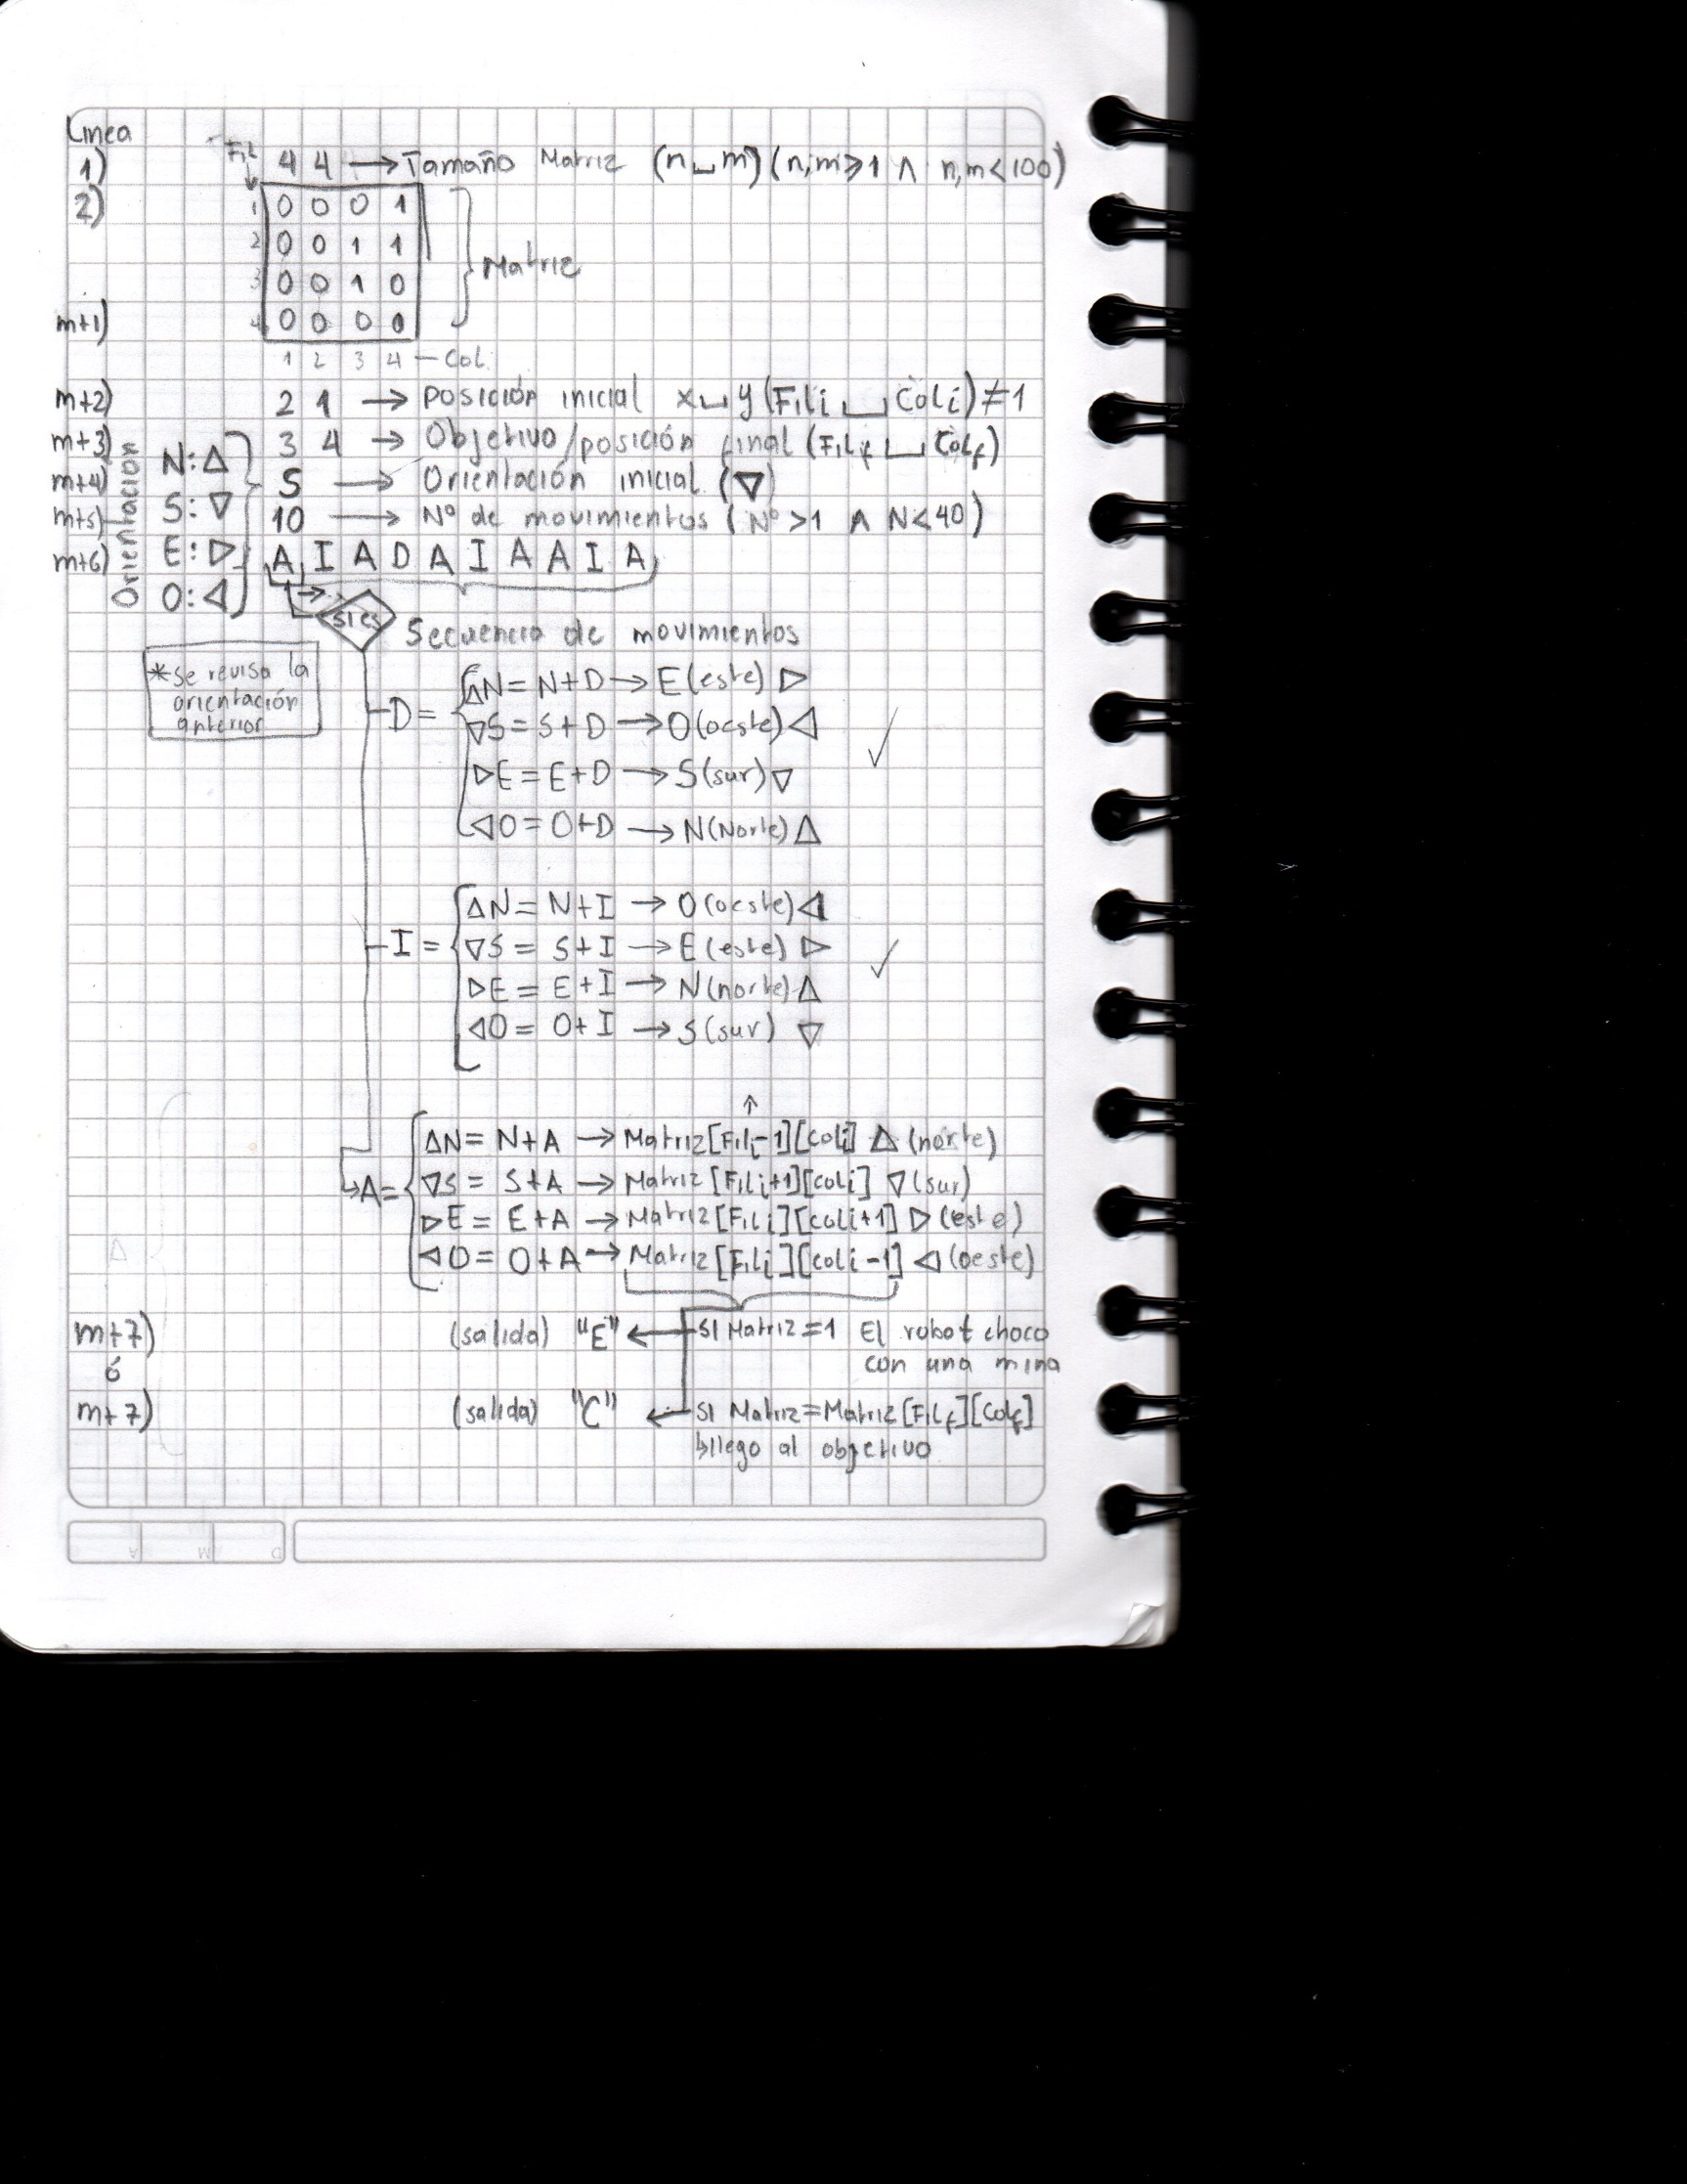 Linea
1) Fil 4 4 → Tamaño Matriz (n␣m) (n,m≥1 ∧ n,m<100)
2) 1 0 0 0 1
2 0 0 1 1
Matriz
3 0 0 1 0
m+1) 4 0 0 0 0
1 2 3 4 – Col.
m+2) 2 1 → posición inicial x␣y (Fili ␣ Coli) ≠ 1
m+3) 3 4 → Objetivo/posición final (Filf ␣ Colf)
Orientación
N: △
m+4) S → Orientación inicial (▽)
S: ▽
m+5) 10 → Nº de movimientos (Nº >1 ∧ N<40)
E: ▷
m+6) A I A D A I A A I A
O: ◁
si es
Secuencia de movimientos
*se revisa la
orientación
anterior
D = △N = N+D → E(este) ▷
▽S = S+D → O(oeste) ◁
▷E = E+D → S(sur) ▽
◁O = O+D → N(Norte) △
I = △N = N+I → O(oeste) ◁
▽S = S+I → E(este) ▷
▷E = E+I → N(norte) △
◁O = O+I → S(sur) ▽
↑
A = △N = N+A → Matriz[Fili-1][coli] △ (norte)
▽S = S+A → Matriz[Fili+1][coli] ▽ (sur)
▷E = E+A → Matriz[Fili][coli+1] ▷ (este)
◁O = O+A → Matriz[Fili][coli-1] ◁ (oeste)
m+7) (salida) "E" ← si Matriz=1 El robot choco
ó con una mina
m+7) (salida) "C" ← si Matriz=Matriz[Filf][Colf]
↳llego al objetivo
A M D